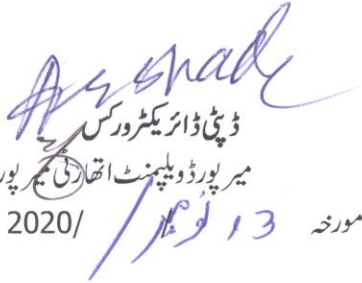 ڈپٹی ڈائریکٹرورکس
میرپورڈویلپمنٹ اتھارٹی میرپور
مورخہ 13 نومبر /2020